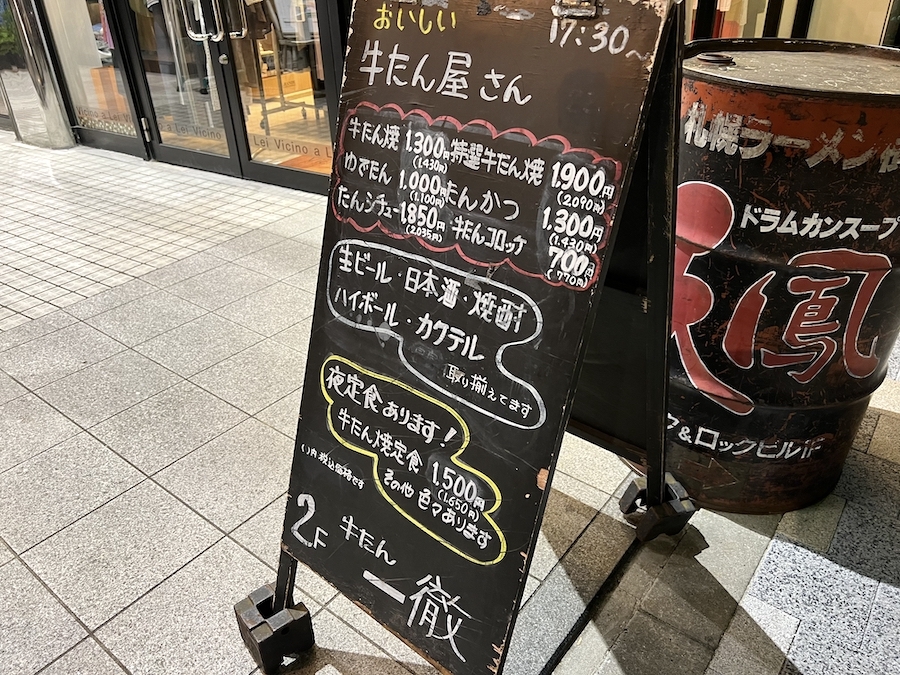 おいしい
17:30～
牛たん屋さん
牛たん焼 1,300円
(1,430円)
特選牛たん焼 1,900円
(2,090円)
ゆでたん 1,000円
(1,100円)
たんかつ 1,300円
(1,430円)
たんシチュー 1,850円
(2,035円)
牛たんコロッケ 700円
(770円)
生ビール・日本酒・焼酎
ハイボール・カクテル
取り揃えてます
夜定食あります!
牛たん焼定食 1,500円
(1,650円)
その他 色々あります
( )内 税込価格です
2F 牛たん
一徹
Lei Vicino a L
Lei Vicino
札幌ラーメン
ドラムカンスープ
鳳
&ロックビル1F